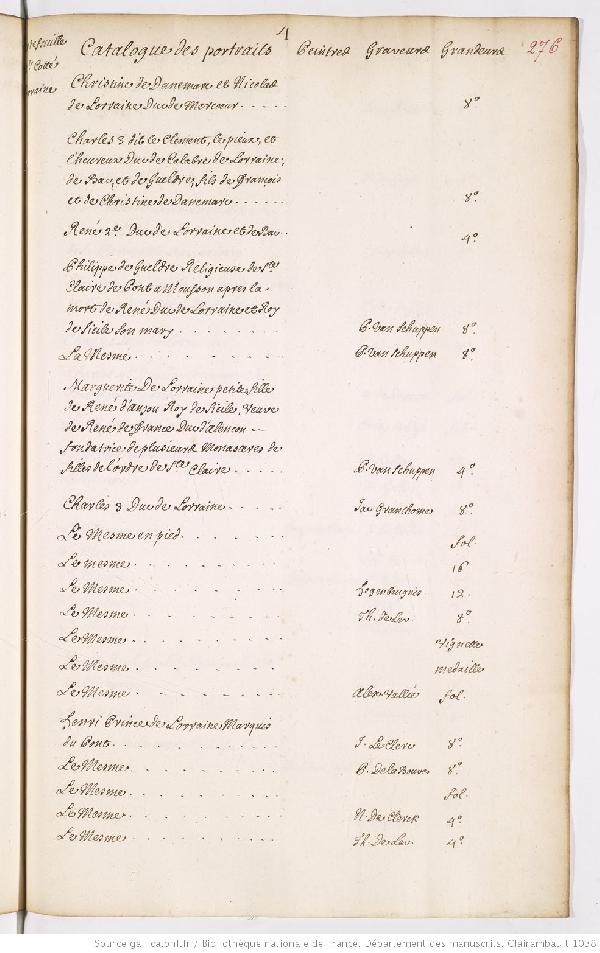 4
Catalogue des portraits Peintres Graveurs Grandeurs 276
Christine de Danemarc et Nicolas
de Lorraine Duc de Mercœur . . . . . 8º
Charles 3 dit le Clement, le pieux, et
l'heureux Duc de Calabre de Lorraine,
de Bar, et de Gueldres, fils de François
et de Christine de Danemarc . . . . . 8º
René 2e Duc de Lorraine et de Bar . . 4º
Philippe de Gueldre Religieuse de Ste
Claire de Pont a Mousson apres la
mort de René Duc de Lorraine et Roy
de Sicile son mary . . . . . . . P. van schuppen 8º
La Mesme . . . . . . . . . P. van schuppen 8º
Marguerite De Lorraine petite fille
de René d'anjou Roy de Sicile, veuve
de René de France Duc d'alencon
fondatrice de plusieurs Monasteres de
filles de l'ordre de Ste Claire . . . . . P. van schuppen 4º
Charles 3 Duc de Lorraine . . . . Ja. Granthome 8º
Le Mesme en pied . . . . . . . fol.
Le mesme . . . . . . . . . 16
Le Mesme . . . . . . . . . Hogenbergius 12
Le Mesme . . . . . . . . . Th. de Leu 8º
Le Mesme . . . . . . . . . vignette
Le Mesme . . . . . . . . . medaille
Le Mesme . . . . . . . . . Alex. Vallée fol.
Henri Prince de Lorraine Marquis
du Pont . . . . . . . . . J. Le Clerc 8º
Le Mesme . . . . . . . . . P. De la Houve 8º
Le Mesme . . . . . . . . . fol.
Le Mesme . . . . . . . . . N. De Clerck 4º
Le Mesme . . . . . . . . . Th. De Leu 4º
Source gallica.bnf.fr / Bibliothèque nationale de France. Département des manuscrits. Clairambault 1038